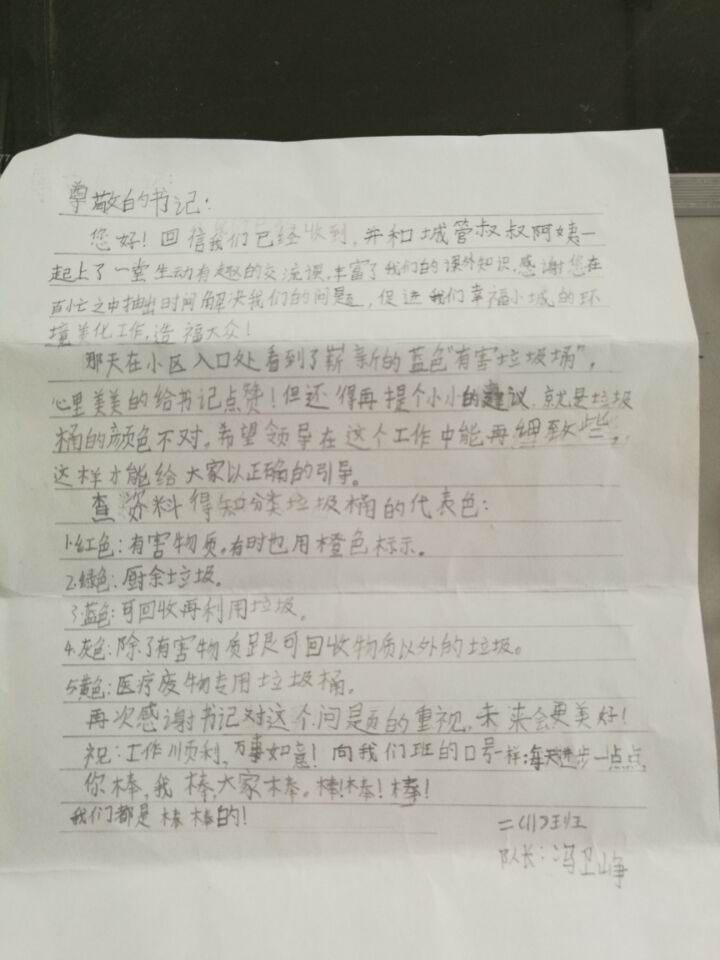 尊敬的书记：
您好！回信我们已经收到，并和城管叔叔阿姨一
起上了一堂生动有趣的交流课，丰富了我们的课外知识，感谢您在
百忙之中抽出时间解决我们的问题，促进我们幸福小城的环
境美化工作，造福大众！
那天在小区入口处看到了崭新的蓝色“有害垃圾桶”，
心里美美的给书记点赞！但还得再提个小小的建议，就是垃圾
桶的颜色不对，希望领导在这个工作中能再细致些，
这样才能给大家以正确的引导。
查资料得知分类垃圾桶的代表色：
1.红色：有害物质。有时也用橙色标示。
2.绿色：厨余垃圾。
3.蓝色：可回收再利用垃圾。
4.灰色：除了有害物质是可回收物质以外的垃圾。
5.黄色：医疗废物专用垃圾桶。
再次感谢书记对这个问题的重视，未来会更美好！
祝：工作顺利，万事如意！向我们班的口号一样：每天进步一点点，
你棒，我棒，大家棒。棒！棒！棒！
我们都是棒棒的！
二（1）班
队长：冯卫峥